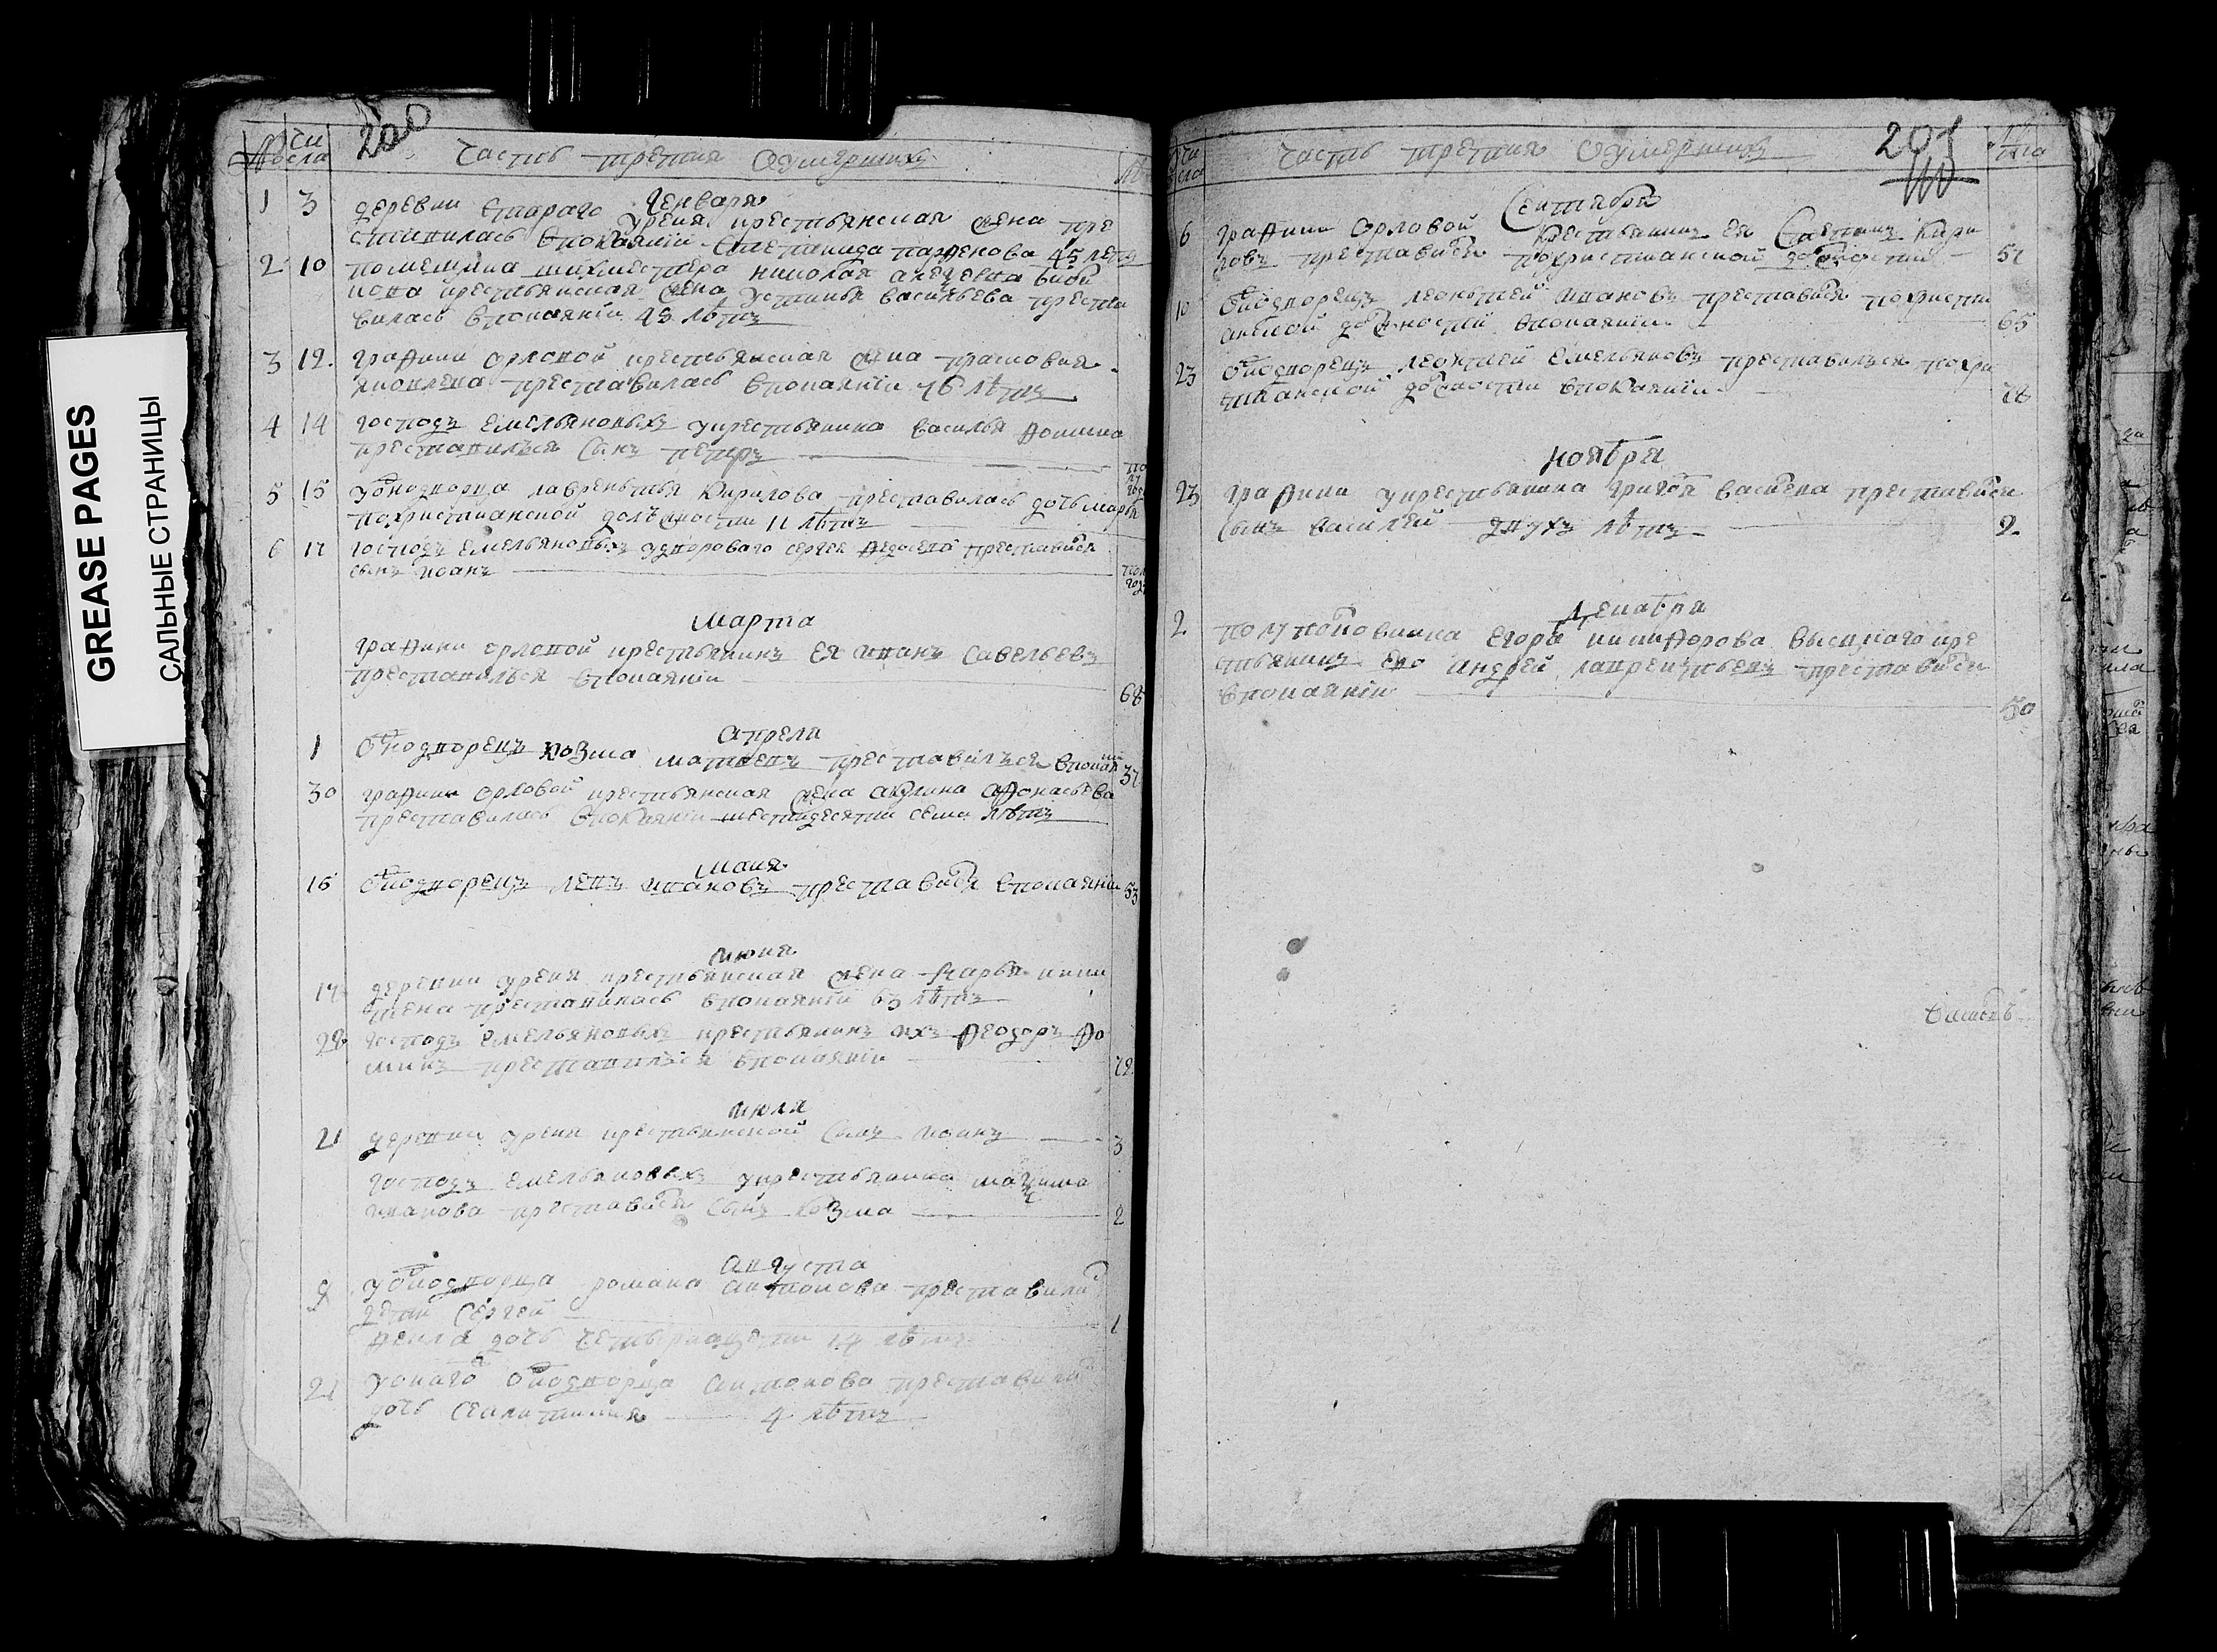 GREASE PAGES
САЛЬНЫЕ СТРАНИЦЫ
200
числа
Часть третия Оумершихъ
Генваря
1 3 деревни Стараго Уреня крестьянская жена пре
ставилась впокаянiи Степанида Парфенова 45 летъ
2 10 помещика шихместера николая
крестьянская жена устинья васильева преста
вилась впокаянiи 43 лѣтъ
3 12 графини орловой крестьянская жена прасковья
яковлева преставилась впокаянiи 76 лѣтъ
4 14 господъ Емельяновыхъ укрестьянина василья Фомина
преставился Сынъ петръ
5 15 Уоднодворца лаврентья Кирилова преставилась дочь марья
похристианской должности 11 лѣтъ
6 17 господъ Емельяновыхъ удвороваго сергея Федосева преставися
сынъ иоанъ
Марта
графини орловой крестьянинъ ея иванъ Савельевъ
преставился впокаянiи 68
Апреля
1 Однодворецъ козма матвевъ преставился впокаянiи 37
30 графини Орловой крестьянская жена акулина афонасьева
преставилась впокаянiи шестидесяти семи лѣтъ
маия
16 Однодворецъ левъ ивановъ преставися впокаянiи 53
июня
17 деревни уреня крестьянская жена марья ники
тена преставилась впокаянiи 63 лѣтъ
28 господъ Емельяновыхъ крестьянинъ ихъ Феодоръ Фо
минъ преставился впокаянiи 72
июля
21 деревни уреня крестьянской Сынъ иоанъ 3
господъ Емельяновыхъ укрестьянина максима
иванова преставися Сынъ козма 2
августа
8 Уоднодворца романа антонова преставились
дети Сергей 1
Фекла дочь 14 лѣтъ
21 Уонаго Однодворца антонова преставилась
дочь 4 лѣтъ
201
числа
Часть третия Оумершихъ
лѣта
Сентября
6 графини Орловой крестьянинъ ея Степанъ Кири
ловъ преставися похристианской должности 57
10 Однодворецъ леонтей ивановъ преставися похристи
анской должности впокаянiи 65
23 Однодворецъ леонтей Емельяновъ преставился похри
тианской должности впокаянiи 78
ноября
23 графини укрестьянина григорья васильева преставися
Сынъ василей двухъ лѣтъ 2
Декабря
2 полуполковника Егора никифорова кре
стьянинъ Его андрей лаврентьевъ преставися
впокаянiи 50